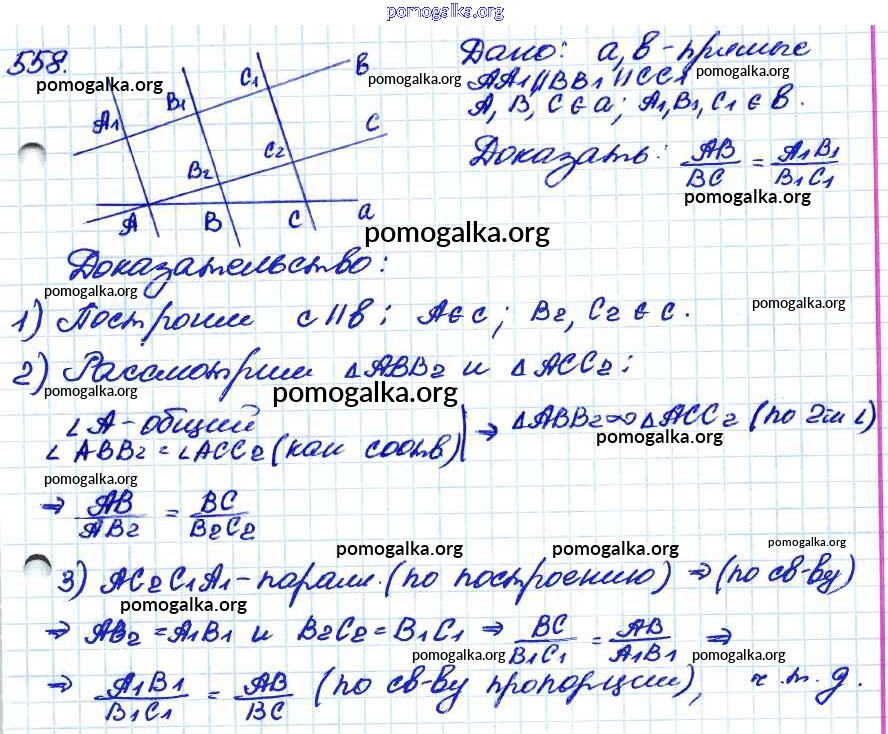 pomogalka.org
558.
pomogalka.org
A1 B1 C1 в
B2 C2 с
A B C a
Дано: a, в - прямые
pomogalka.org pomogalka.org
AA1 || BB1 || CC1
A, B, C ∈ a; A1, B1, C1 ∈ в.
Доказать: AB/BC = A1B1/B1C1
pomogalka.org
pomogalka.org
Доказательство:
pomogalka.org
1) Построим c || в; A ∈ c; B2, C2 ∈ c.
pomogalka.org
2) Рассмотрим △ABB2 и △ACC2:
pomogalka.org pomogalka.org
∠A - общий
∠ABB2 = ∠ACC2 (как соотв) ⇒ △ABB2 ∞ △ACC2 (по 2м ∠)
pomogalka.org
pomogalka.org
⇒ AB/AB2 = BC/B2C2
pomogalka.org pomogalka.org pomogalka.org
3) AC2C1A1 - парал. (по построению) ⇒ (по св-ву)
pomogalka.org
⇒ AB2 = A1B1 и B2C2 = B1C1 ⇒ BC/B1C1 = AB/A1B1 ⇒
pomogalka.org pomogalka.org
⇒ A1B1/B1C1 = AB/BC (по св-ву пропорции), ч.т.д.